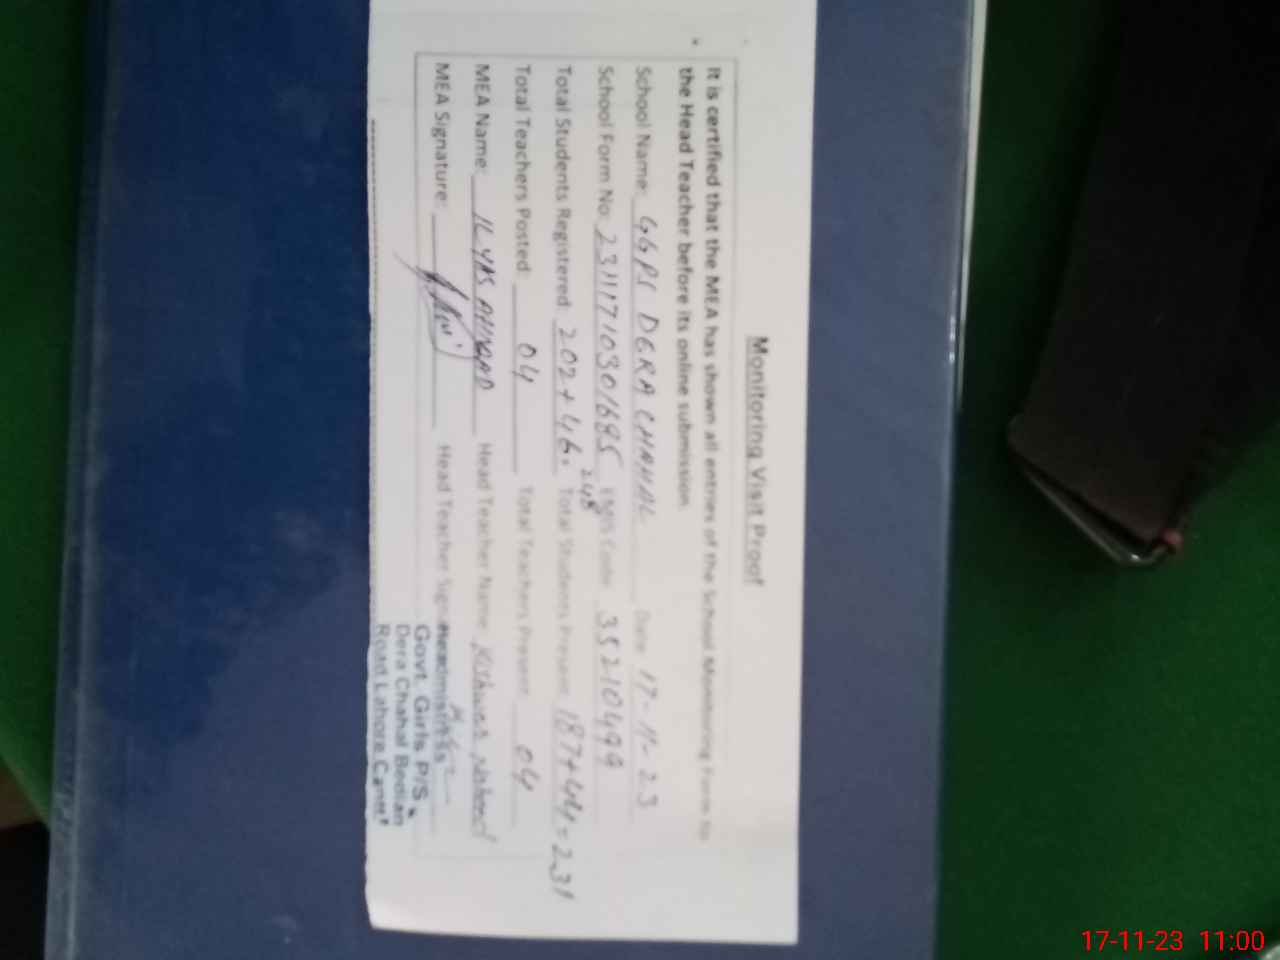 Monitoring Visit Proof
It is certified that the MEA has shown all entries of the School Monitoring Form to
the Head Teacher before its online submission.
School Name: GGPS DERA CHAHAL Date 17-11-23
School Form No 23111710301685 EMIS Code 35210499
Total Students Registered: 202+46. 248 Total Students Present 187+44=231
Total Teachers Posted: 04 Total Teachers Present 04
MEA Name: ILYAS AHMAD Head Teacher Name Kishwar Naheed
MEA Signature: Head Teacher
Headmistress
Govt. Girls P/S
Dera Chahal Bedian
Road Lahore Cantt
17-11-23 11:00